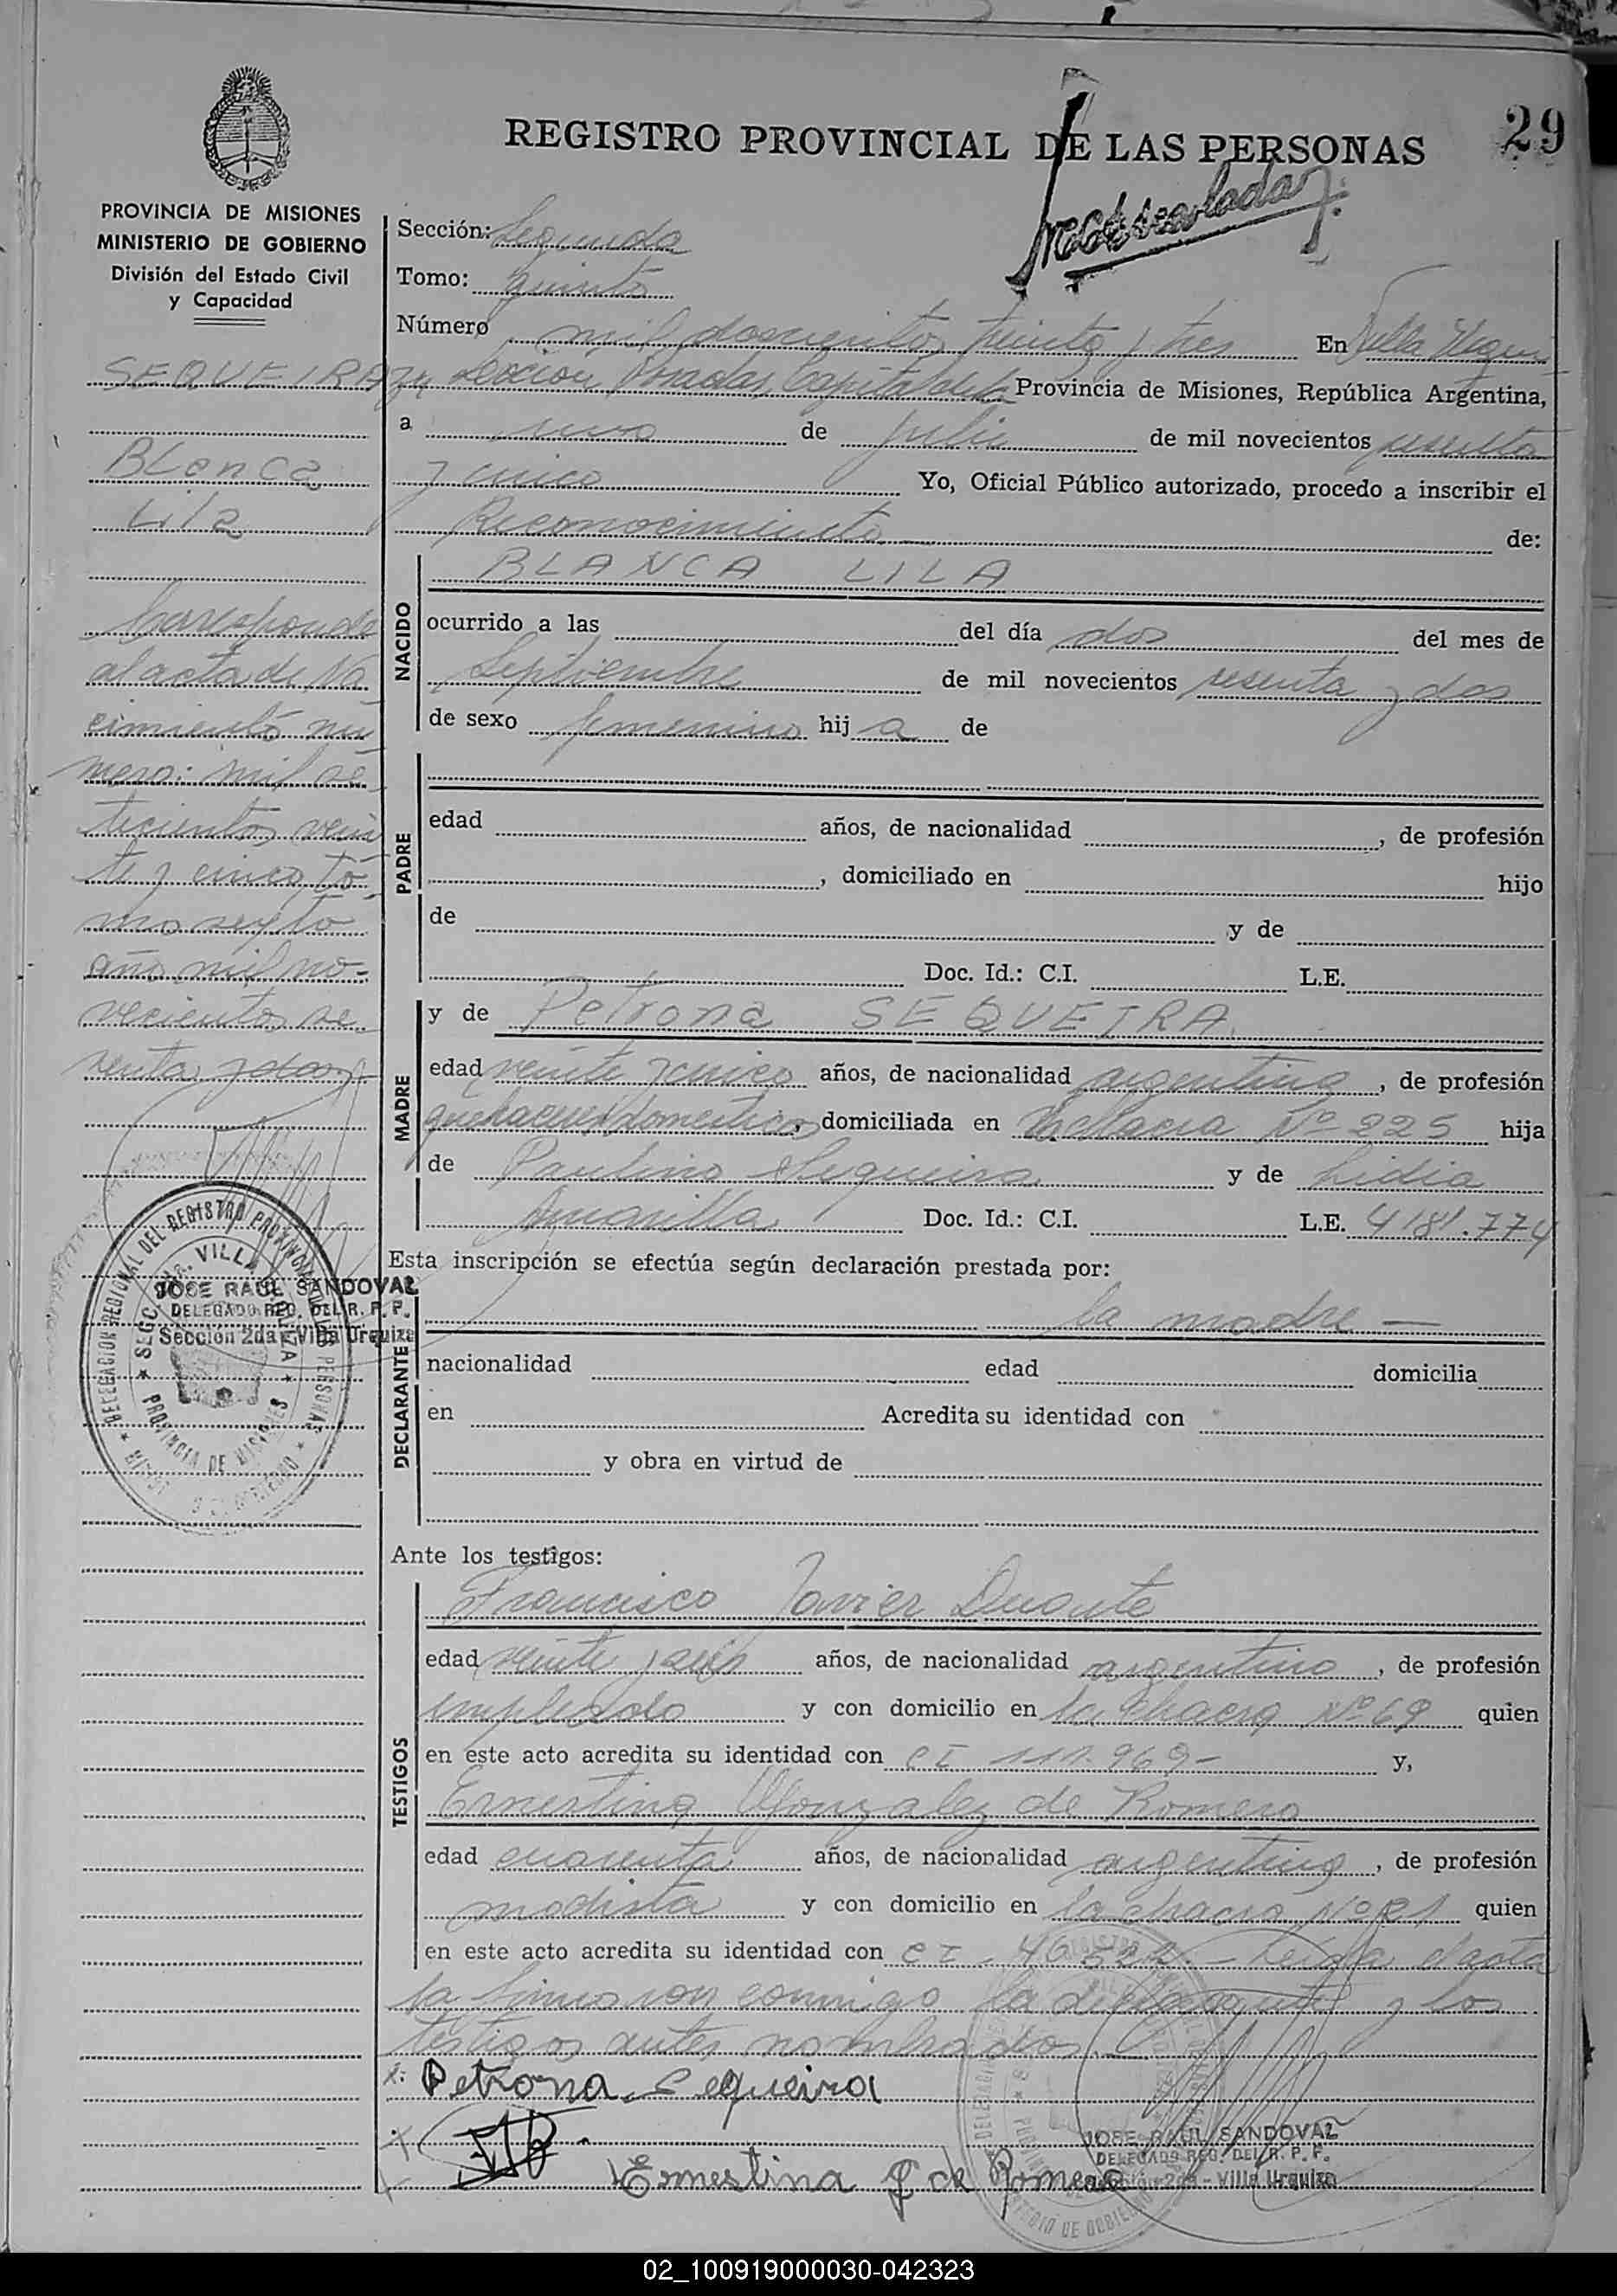 29
REGISTRO PROVINCIAL DE LAS PERSONAS
PROVINCIA DE MISIONES
MINISTERIO DE GOBIERNO
División del Estado Civil
y Capacidad
SEQUEIRA
Blanca
Lila
Corresponde
al acta de Na
cimiento nú
mero: mil se
tecientos vein
te y cinco, to
mo sexto
año mil no-
vecientos se
senta y dos
Sección: Segunda
Tomo: quinto
Número mil doscientos treinta y tres En Villa Urqui
za Sección Posadas Capital de la Provincia de Misiones, República Argentina,
a uno de julio de mil novecientos sesenta
y cinco Yo, Oficial Público autorizado, procedo a inscribir el
Reconocimiento de:
NACIDO
BLANCA LILA
ocurrido a las del día dos del mes de
Septiembre de mil novecientos sesenta y dos
de sexo femenino hij a de
PADRE
edad años, de nacionalidad , de profesión
, domiciliado en hijo
de y de
Doc. Id.: C.I. L.E.
MADRE
y de Petrona SEQUEIRA
edad veinte y cinco años, de nacionalidad argentina, de profesión
quehaceres domésticos, domiciliada en Chacra Nº 225 hija
de Paulino Sequeira y de Lidia
Amarilla Doc. Id.: C.I. L.E. 4181.774
Esta inscripción se efectúa según declaración prestada por:
DECLARANTE
la madre —
nacionalidad edad domicilia
en Acredita su identidad con
y obra en virtud de
JOSE RAUL SANDOVAL
DELEGADO REG. DEL R. P. P.
Sección 2da - Villa Urquiza
DELEGACION REGIONAL DEL REGISTRO PROVINCIAL DE LAS PERSONAS
PROVINCIA DE MISIONES
Ante los testigos:
TESTIGOS
Francisco Javier Duarte
edad veinte y seis años, de nacionalidad argentino, de profesión
empleado y con domicilio en la chacra Nº 69 quien
en este acto acredita su identidad con CI 111.969- y,
Ernestina González de Romero
edad cuarenta años, de nacionalidad argentina, de profesión
modista y con domicilio en la chacra Nº 81 quien
en este acto acredita su identidad con CI - 46 - Leída el acta
la firmaron conmigo la declarante y los
testigos antes nombrados
Petrona Sequeira
Ernestina G de Romero
JOSE RAUL SANDOVAL
DELEGADO REG. DEL R. P. P.
Sección 2da - Villa Urquiza
02_100919000030-042323